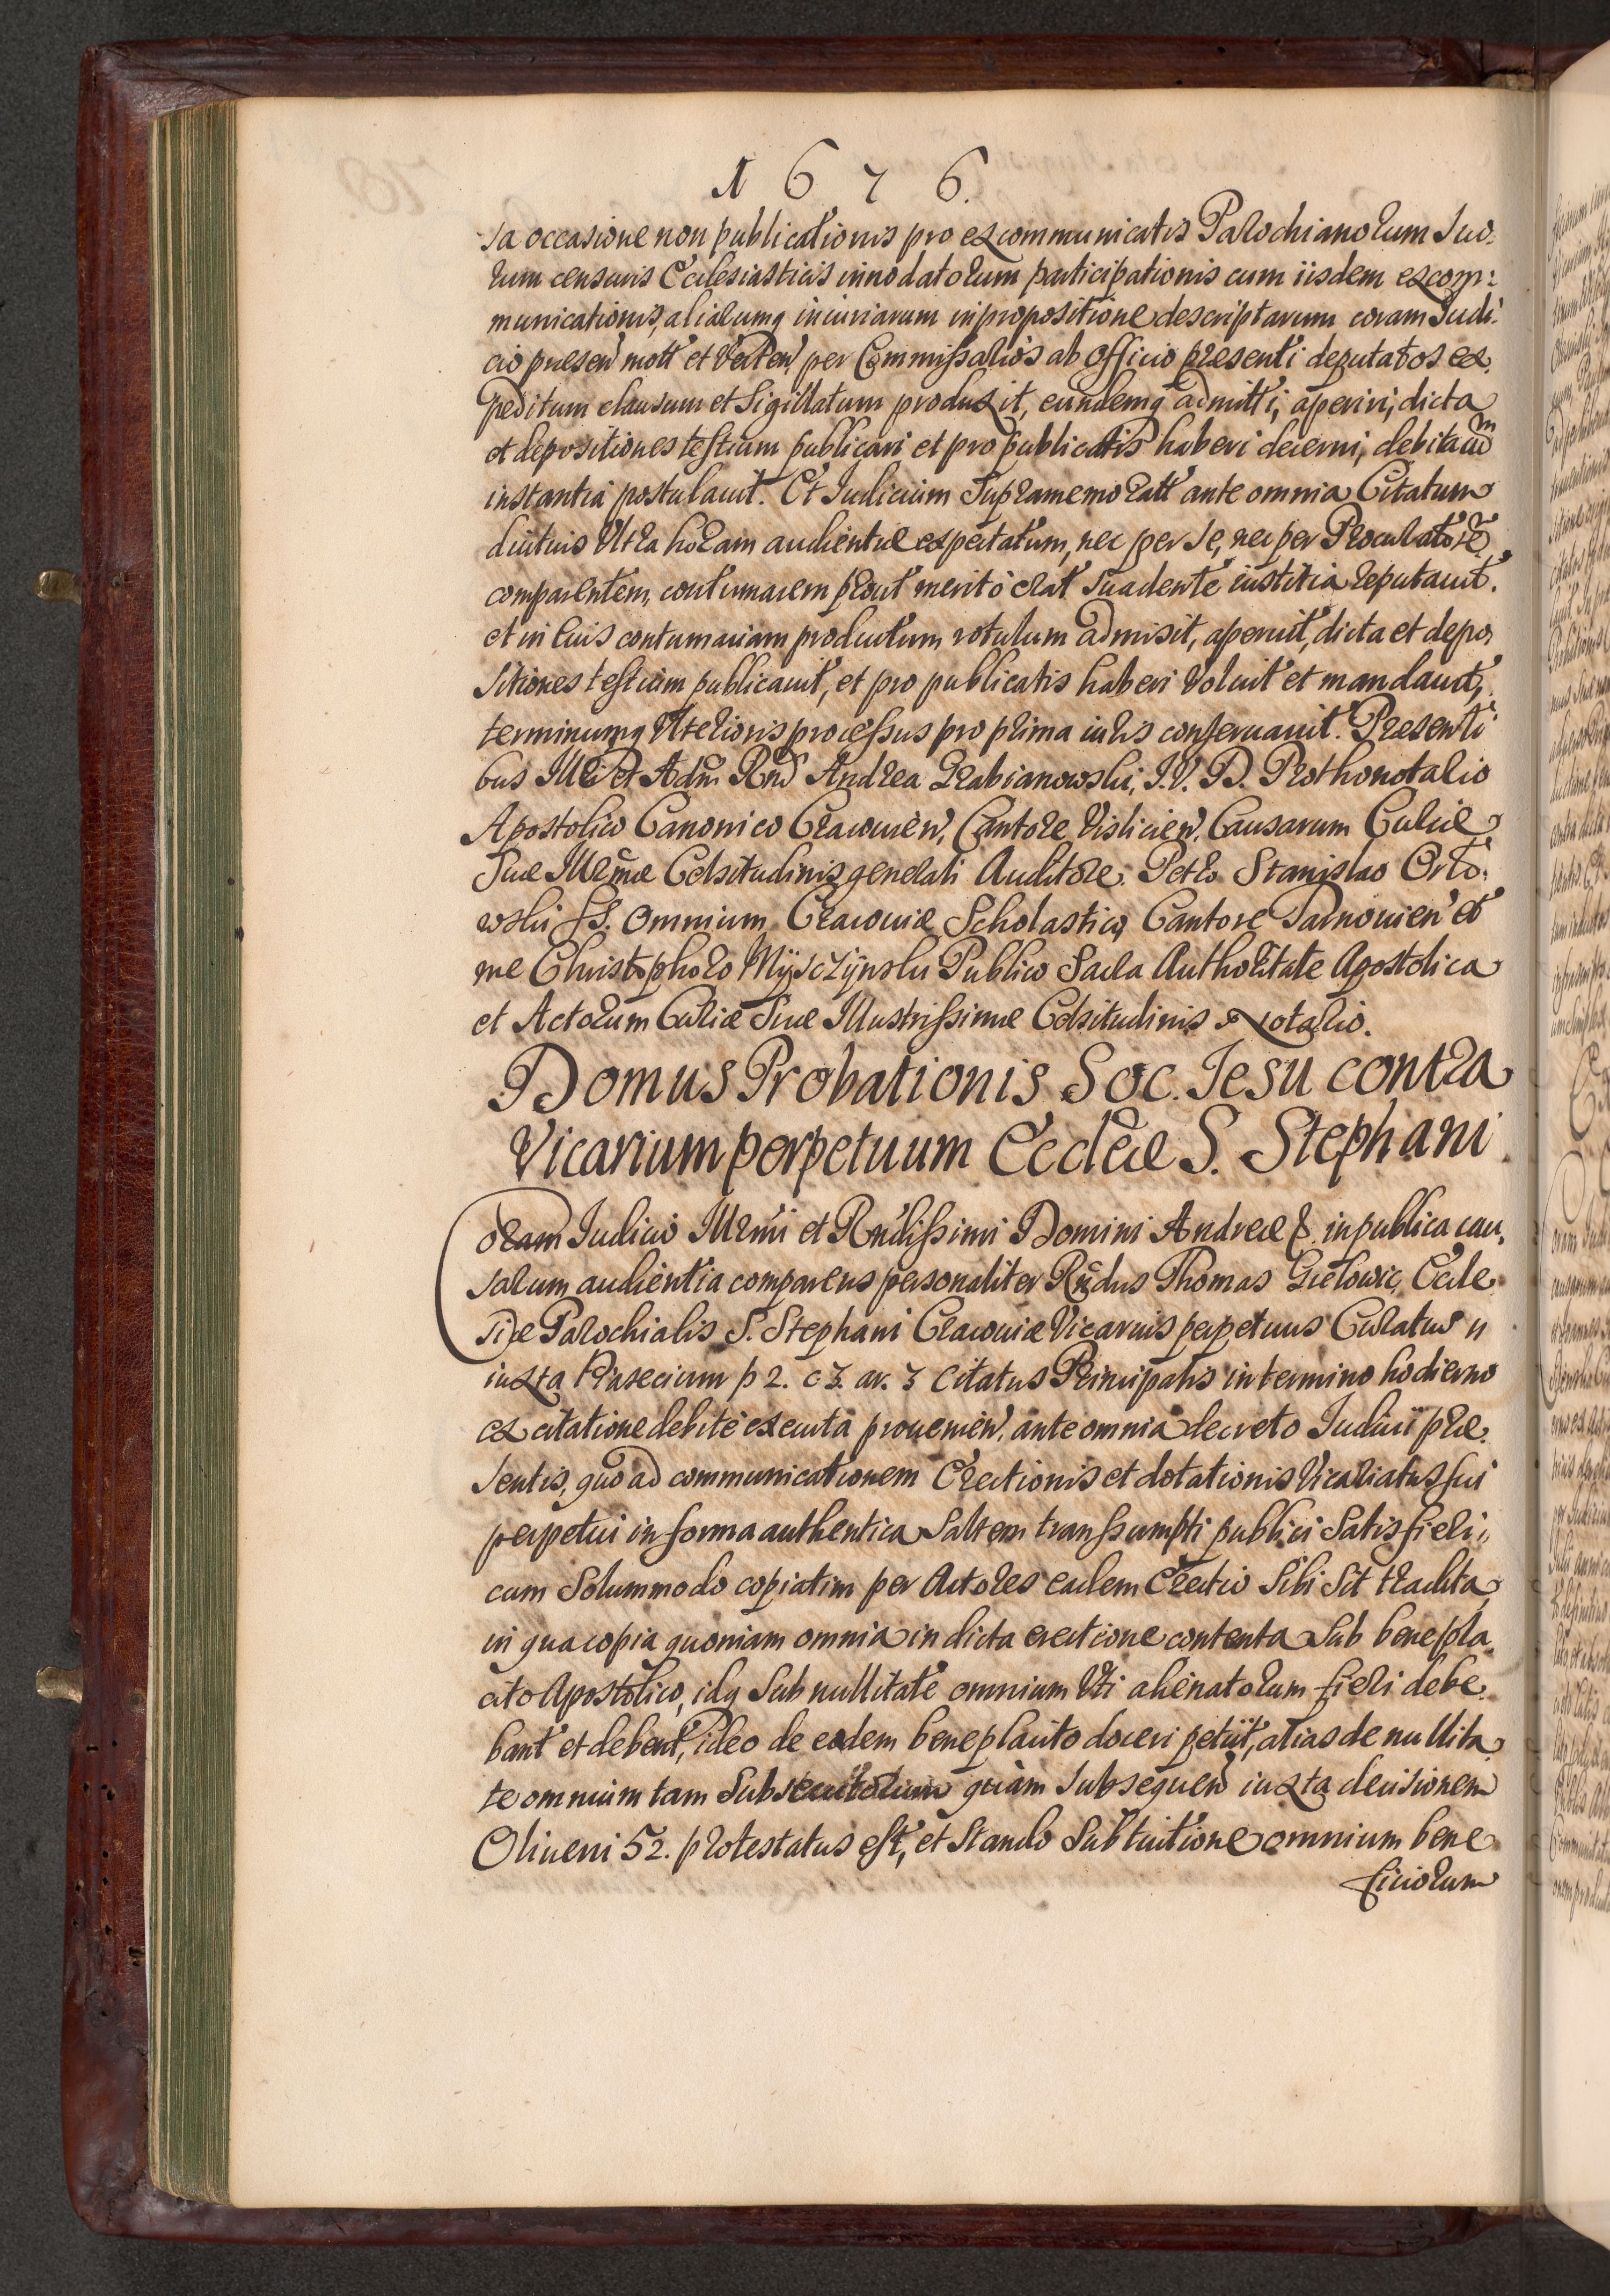 1676.
sa occasione non publicationis pro excommunicatis Parochianorum suo-
rum censuris Ecclesiasticis innodatorum participationis cum iisdem excom:
municationis, aliarumq iniuriarum in propositione descriptarum coram Judi:
cio presen mott et Verten per Commissarios ab officio presenti deputatos ex
peditum clausum et Sigillatum produxit, eundemq admitti, aperiri, dicta
et depositiones testium publicari et pro publicatis haberi decerni, debita cum
instantia postulauit. Et Iudicium Supramemoratt ante omnia Citatum
diutius Vltra horam audientiae expectatum, nec per se, nec per Procuratore
comparentem, contumacem prout merito erat suadente iustitia reputauit.
et in eius contumaciam productum rotulum admisit, aperuit, dicta et depo
sitiones testium publicauit, et pro publicatis haberi Voluit et mandauit,
terminumq Vlterioris processus pro prima iuris conseruauit. Praesenti
bus Illri et Adm Rnd Andrea Grabianowski, I.V.D. Prothonotario
Apostolico Canonico Cracouien, Cantore Vislicien, Causarum Curiae
Suae Illrmae Celsitudinis generali Auditore. Petro Stanislao Orlo-
wski SS. Omnium Cracouiae Scholastico, Cantore Tarnouien et
me Christophoro Mysczynski Publico Sacra Authoritate Apostolica
et Actorum Curiae Suae Illustrissimae Celsitudinis Notario.
Domus Probationis Soc. Iesu contra
Vicarium perpetuum Eccliae S. Stephani
Coram Iudicio Illrmi et Rndissimi Domini Andreae &. in publica cau,
sarum audientia comparens personaliter Rndus Thomas Gielowic, Eccle
siae Parochialis S. Stephani Cracouiae Vicarius perpetuus Curatus n
iuxta Piasecium p 2. c 3. ar. 3 Citatus Principalis in termino hodierno
ex citatione debite executa prouenien, ante omnia decreto Iudicii prae
sentis, quo ad communicationem Erectionis et dotationis Vicariatus sui
perpetui in forma authentica saltem transsumpti publici satisfieri,
cum solummodo copiatim per Actores eadem Erectio sibi sit tradita,
in qua copia quoniam omnia in dicta erectione contenta sub benepla
cito Apostolico, idq sub nullitate omnium Vti alienatorum fieri debe
bant et debent, ideo de eodem beneplacito doceri petiit, alias de nullita
te omnium tam subsecutorum quam subsequen iuxta decisionem
Oliueni 52. protestatus est, et stando sub tuitione omnium bene
ficiorum